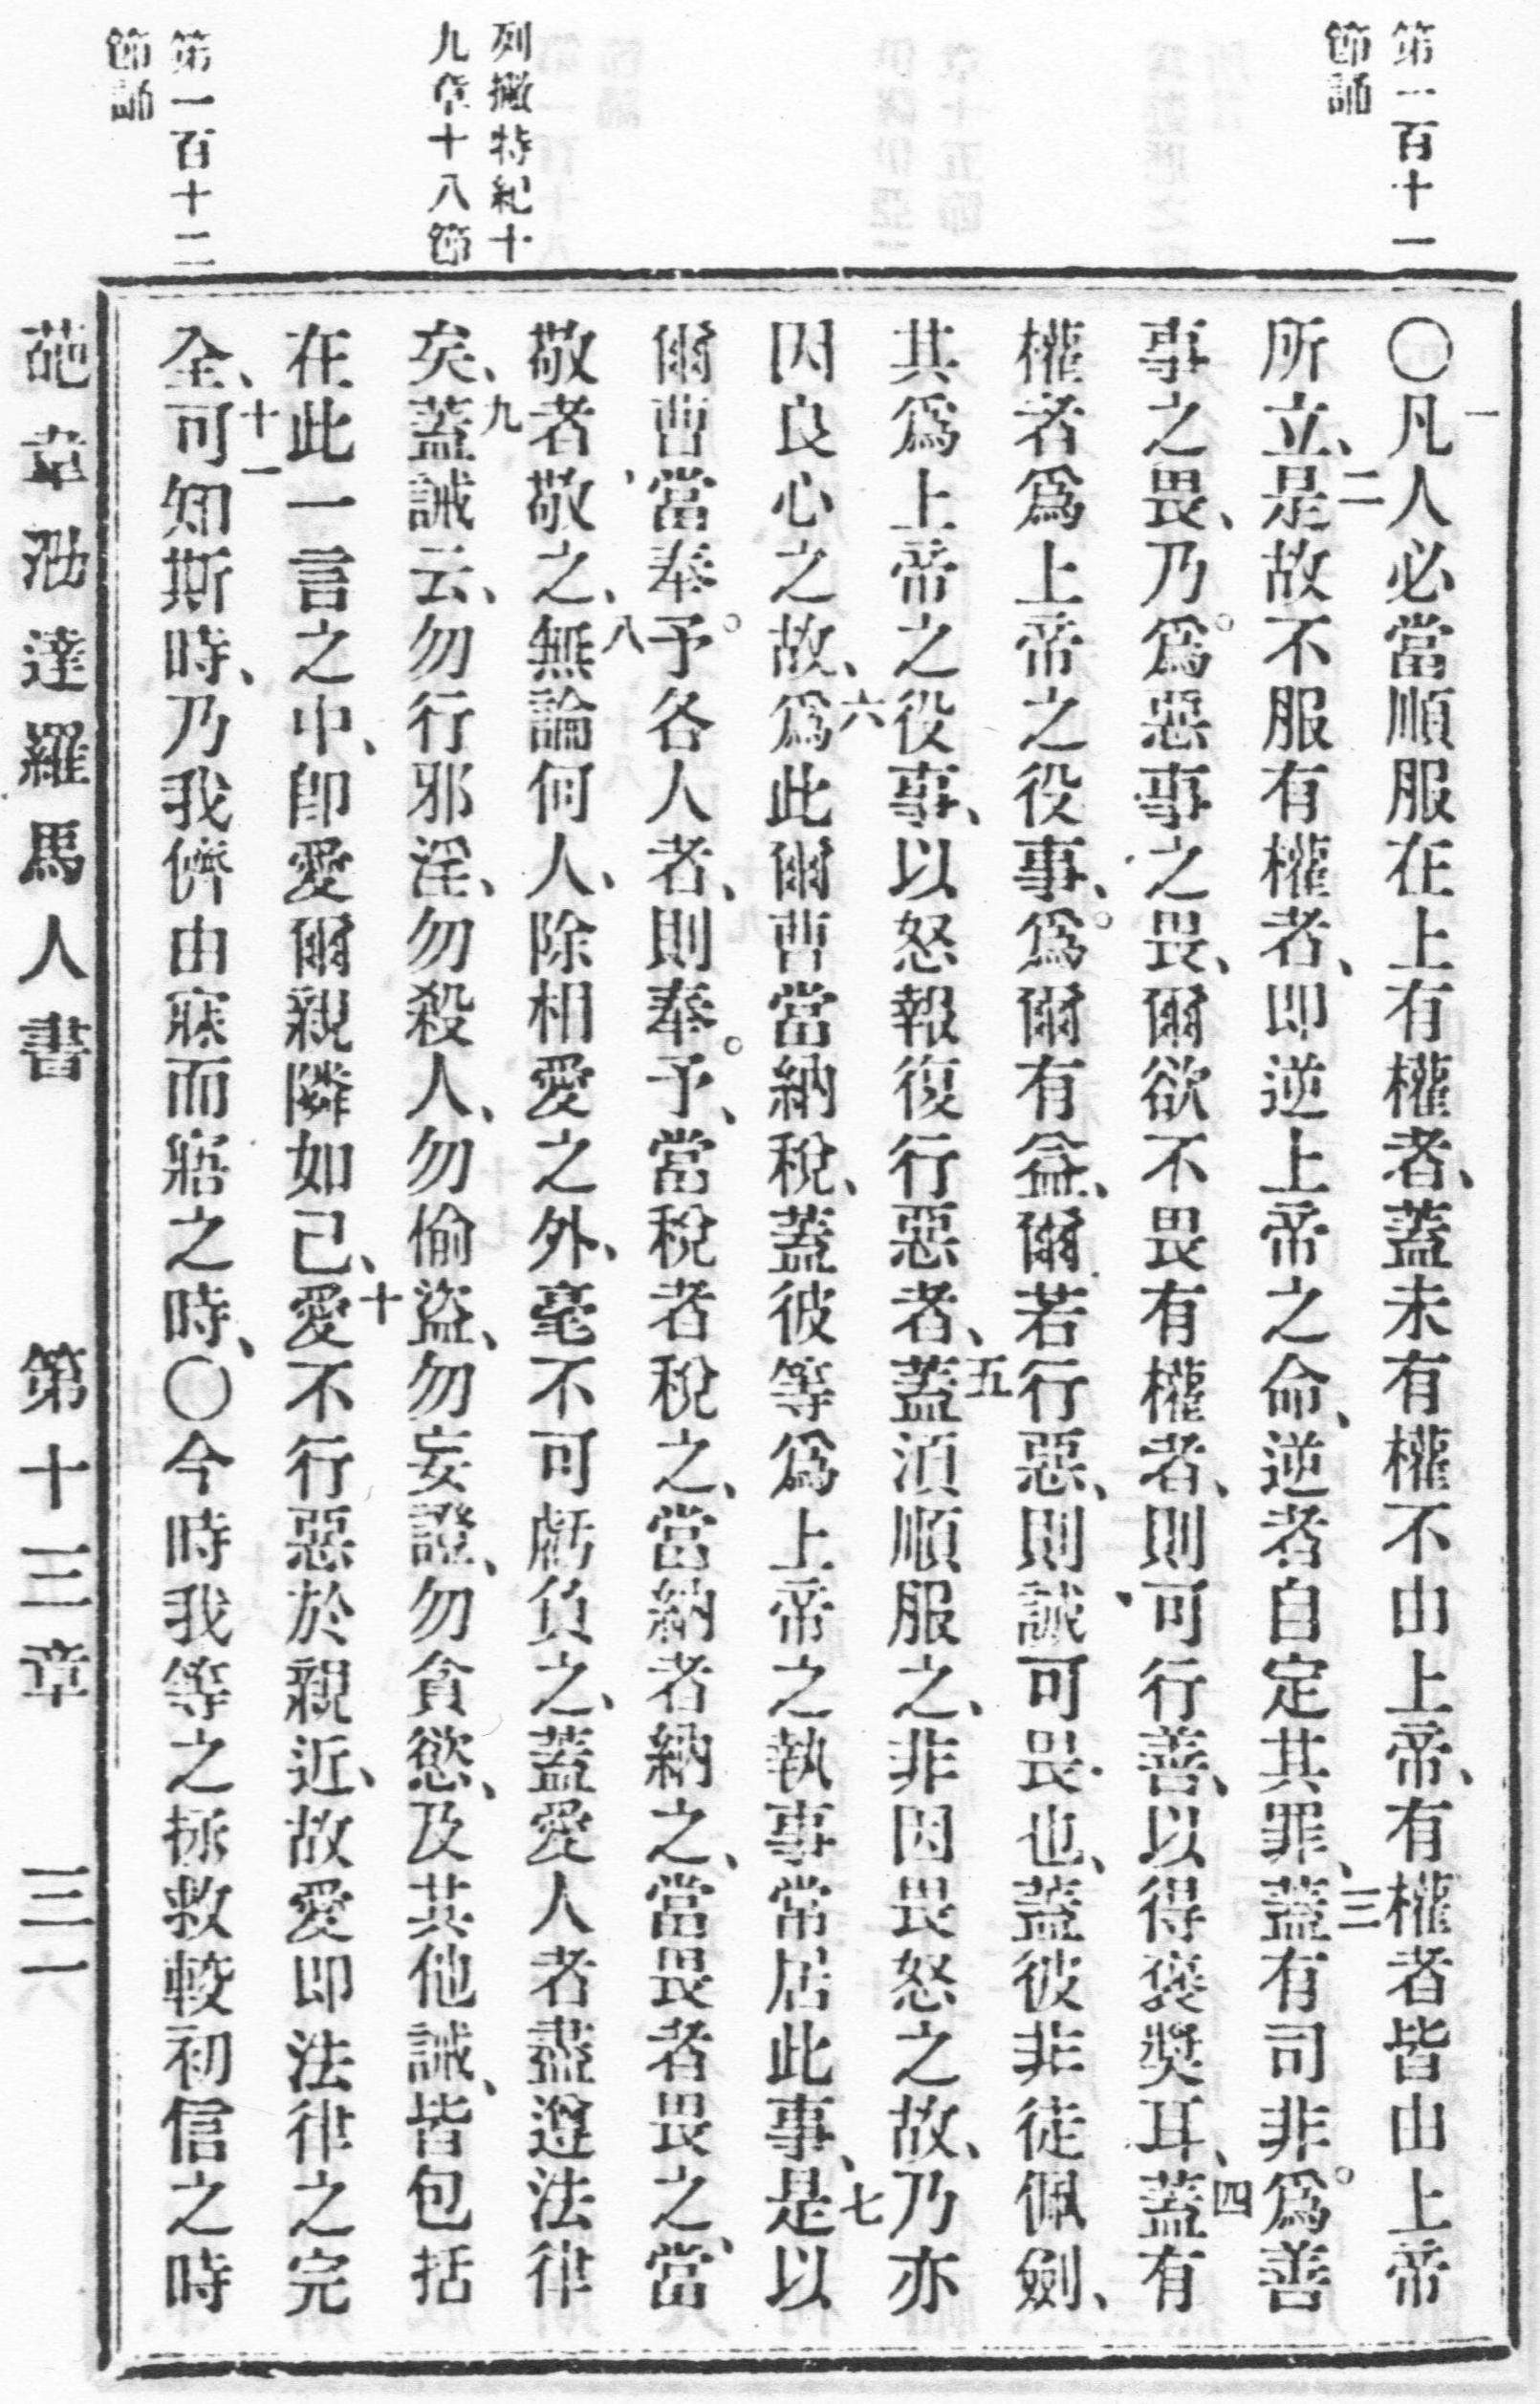 第一百十一
節誦
列撒特紀十
九章十八節
第一百十二
節誦
一
〇凡人必當順服在上有權者、蓋未有權不由上帝、有權者皆由上帝
所立、二是故不服有權者、即逆上帝之命、逆者自定其罪、三蓋有司非爲善
事之畏、乃爲惡事之畏、爾欲不畏有權者、則可行善、以得褒獎耳、四蓋有
權者爲上帝之役事、爲爾有益、爾若行惡、則誠可畏也、蓋彼非徒佩劍、
其爲上帝之役事、以怒報復行惡者、五蓋湏順服之、非因畏怒之故、乃亦
因良心之故、六爲此爾曹當納稅、蓋彼等爲上帝之執事常居此事、七是以
爾曹當奉予各人者、則奉予、當稅者稅之、當納者納之、當畏者畏之、當
敬者敬之、八無論何人、除相愛之外、毫不可虧負之、蓋愛人者盡遵法律
矣、九蓋誡云、勿行邪淫、勿殺人、勿偷盜、勿妄證、勿貪慾、及其他誡、皆包括
在此一言之中、即愛爾親隣如己、十愛不行惡於親近、故愛即法律之完
全、十一可知斯時、乃我儕由寐而寤之時、〇今時我等之拯救較初信之時
葩韋泐達羅馬人書 第十三章 三一